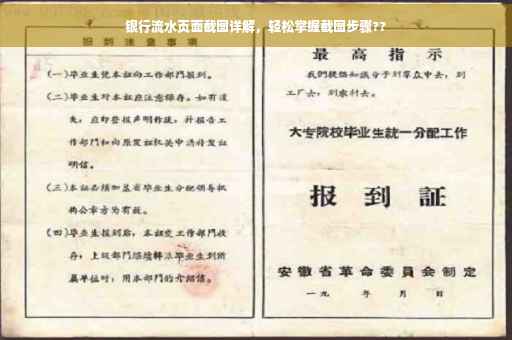 银行流水页面截图详解，轻松掌握截图步骤??
报到注意事项
(一)毕业生凭本证向工作部门报到。
(二)毕业生对本证应注意保存。如有遗
失，应即登报声明作废，并报告工
作部门和向原发证机关申请补发证
明信。
(三)本证必须加盖省毕业生分配领导机
构公章方为有效。
(四)毕业生报到后，本证交工作部门收
存；上级部门
毕业生到所
属单位时，用本部门的介绍信。
最高指示
我们提倡知识分子到群众中去，到
工厂去，到农村去。
大专院校毕业生统一分配工作
报到証
安徽省革命委員会制定
一九 年 月 日